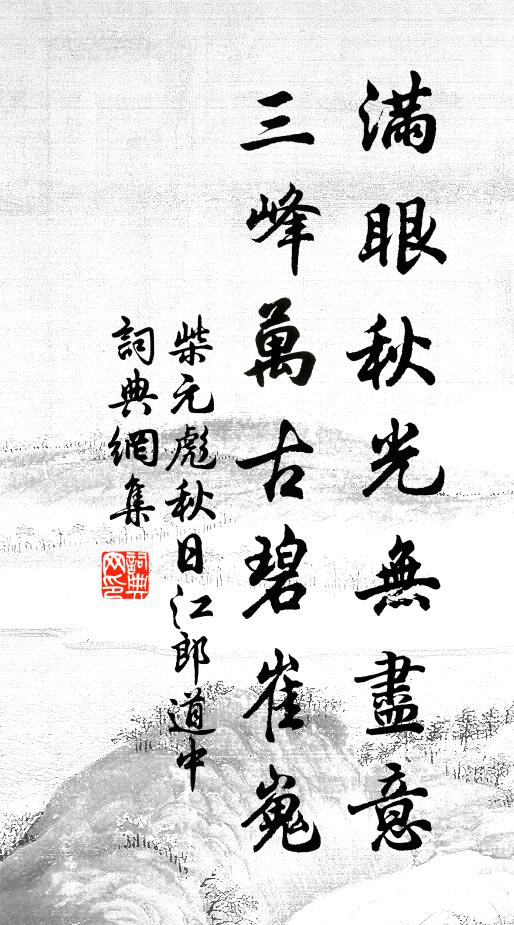 滿眼秋光無盡意
三峰萬古碧崔嵬
柴元彪秋日江郎道中
詞典網集
詞典
网印